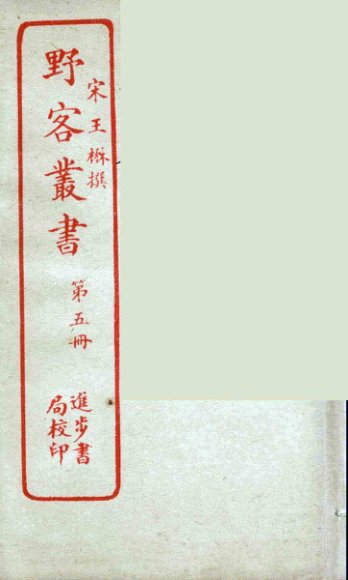 宋王楙撰
野客叢書
第五冊
進步書
局校印